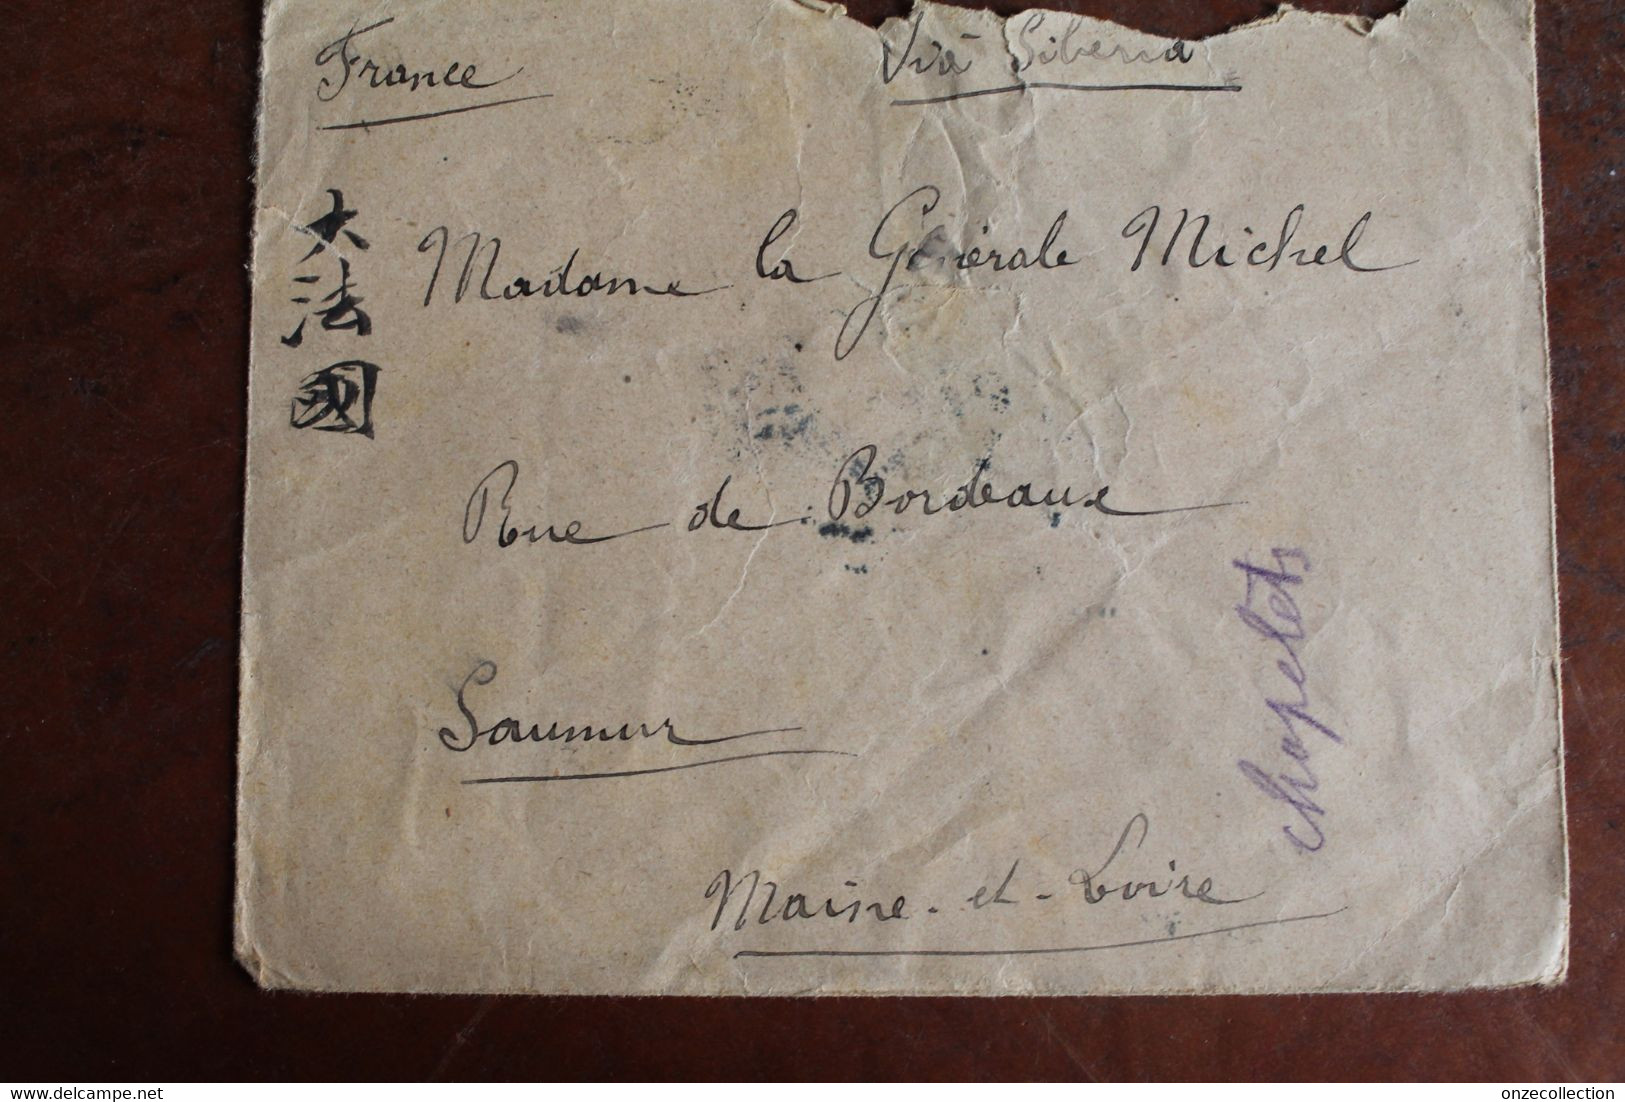 France
Viâ Siberia
大法國
Madame la Générale Michel
Rue de Bordeaux
Saumur
Maine-et-Loire
chapelets
delcampe.net
onzecollection